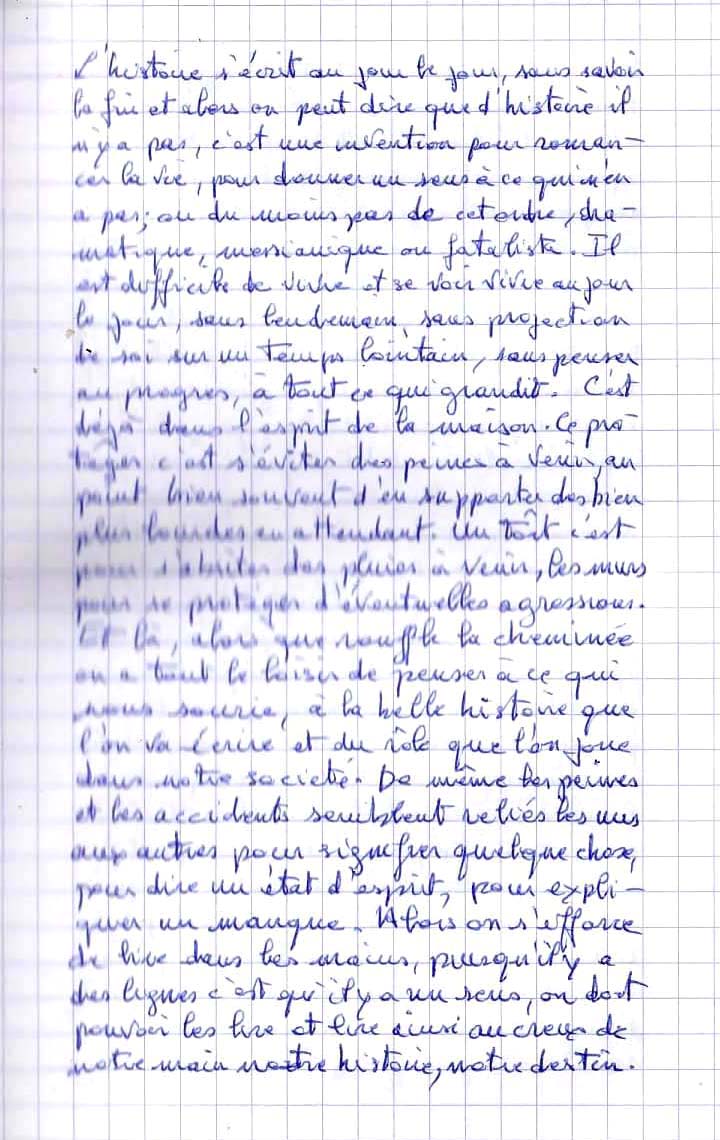 L'histoire s'écrit au jour le jour, sans savoir
la fin et alors on peut dire que d'histoire il
n'y a pas, c'est une invention pour roman-
cer la vie, pour donner un sens à ce qui n'en
a pas; ou du moins pas de cet ordre, dra-
matique, messianique ou fataliste. Il
est difficile de vivre et se voir vivre au jour
le jour, sans lendemain, sans projection
de soi sur un temps lointain, sans penser
au progres, à tout ce qui grandit. C'est
déjà dans l'esprit de la maison. Ce pro-
téger c'est s'éviter des peines à venir, au
point bien souvent d'en supporter des bien
plus lourdes en attendant. Un toît c'est
pour s'abriter des pluies à venir, les murs
pour se protéger d'éventuelles agressions.
Et là, alors que ronfle la cheminée
on a tout le loisir de penser à ce qui
nous sourie, à la belle histoire que
l'on va écrire et du rôle que l'on joue
dans notre societé. De même les peines
et les accidents semblent reliés les uns
aux autres pour signifier quelque chose,
pour dire un état d'esprit, pour expli-
quer un manque. Alors on s'efforce
de lire dans les mains, puisqu'il y a
des lignes c'est qu'il y a un sens, on doit
pouvoir les lire et lire ainsi au creux de
notre main notre histoire, notre destin.